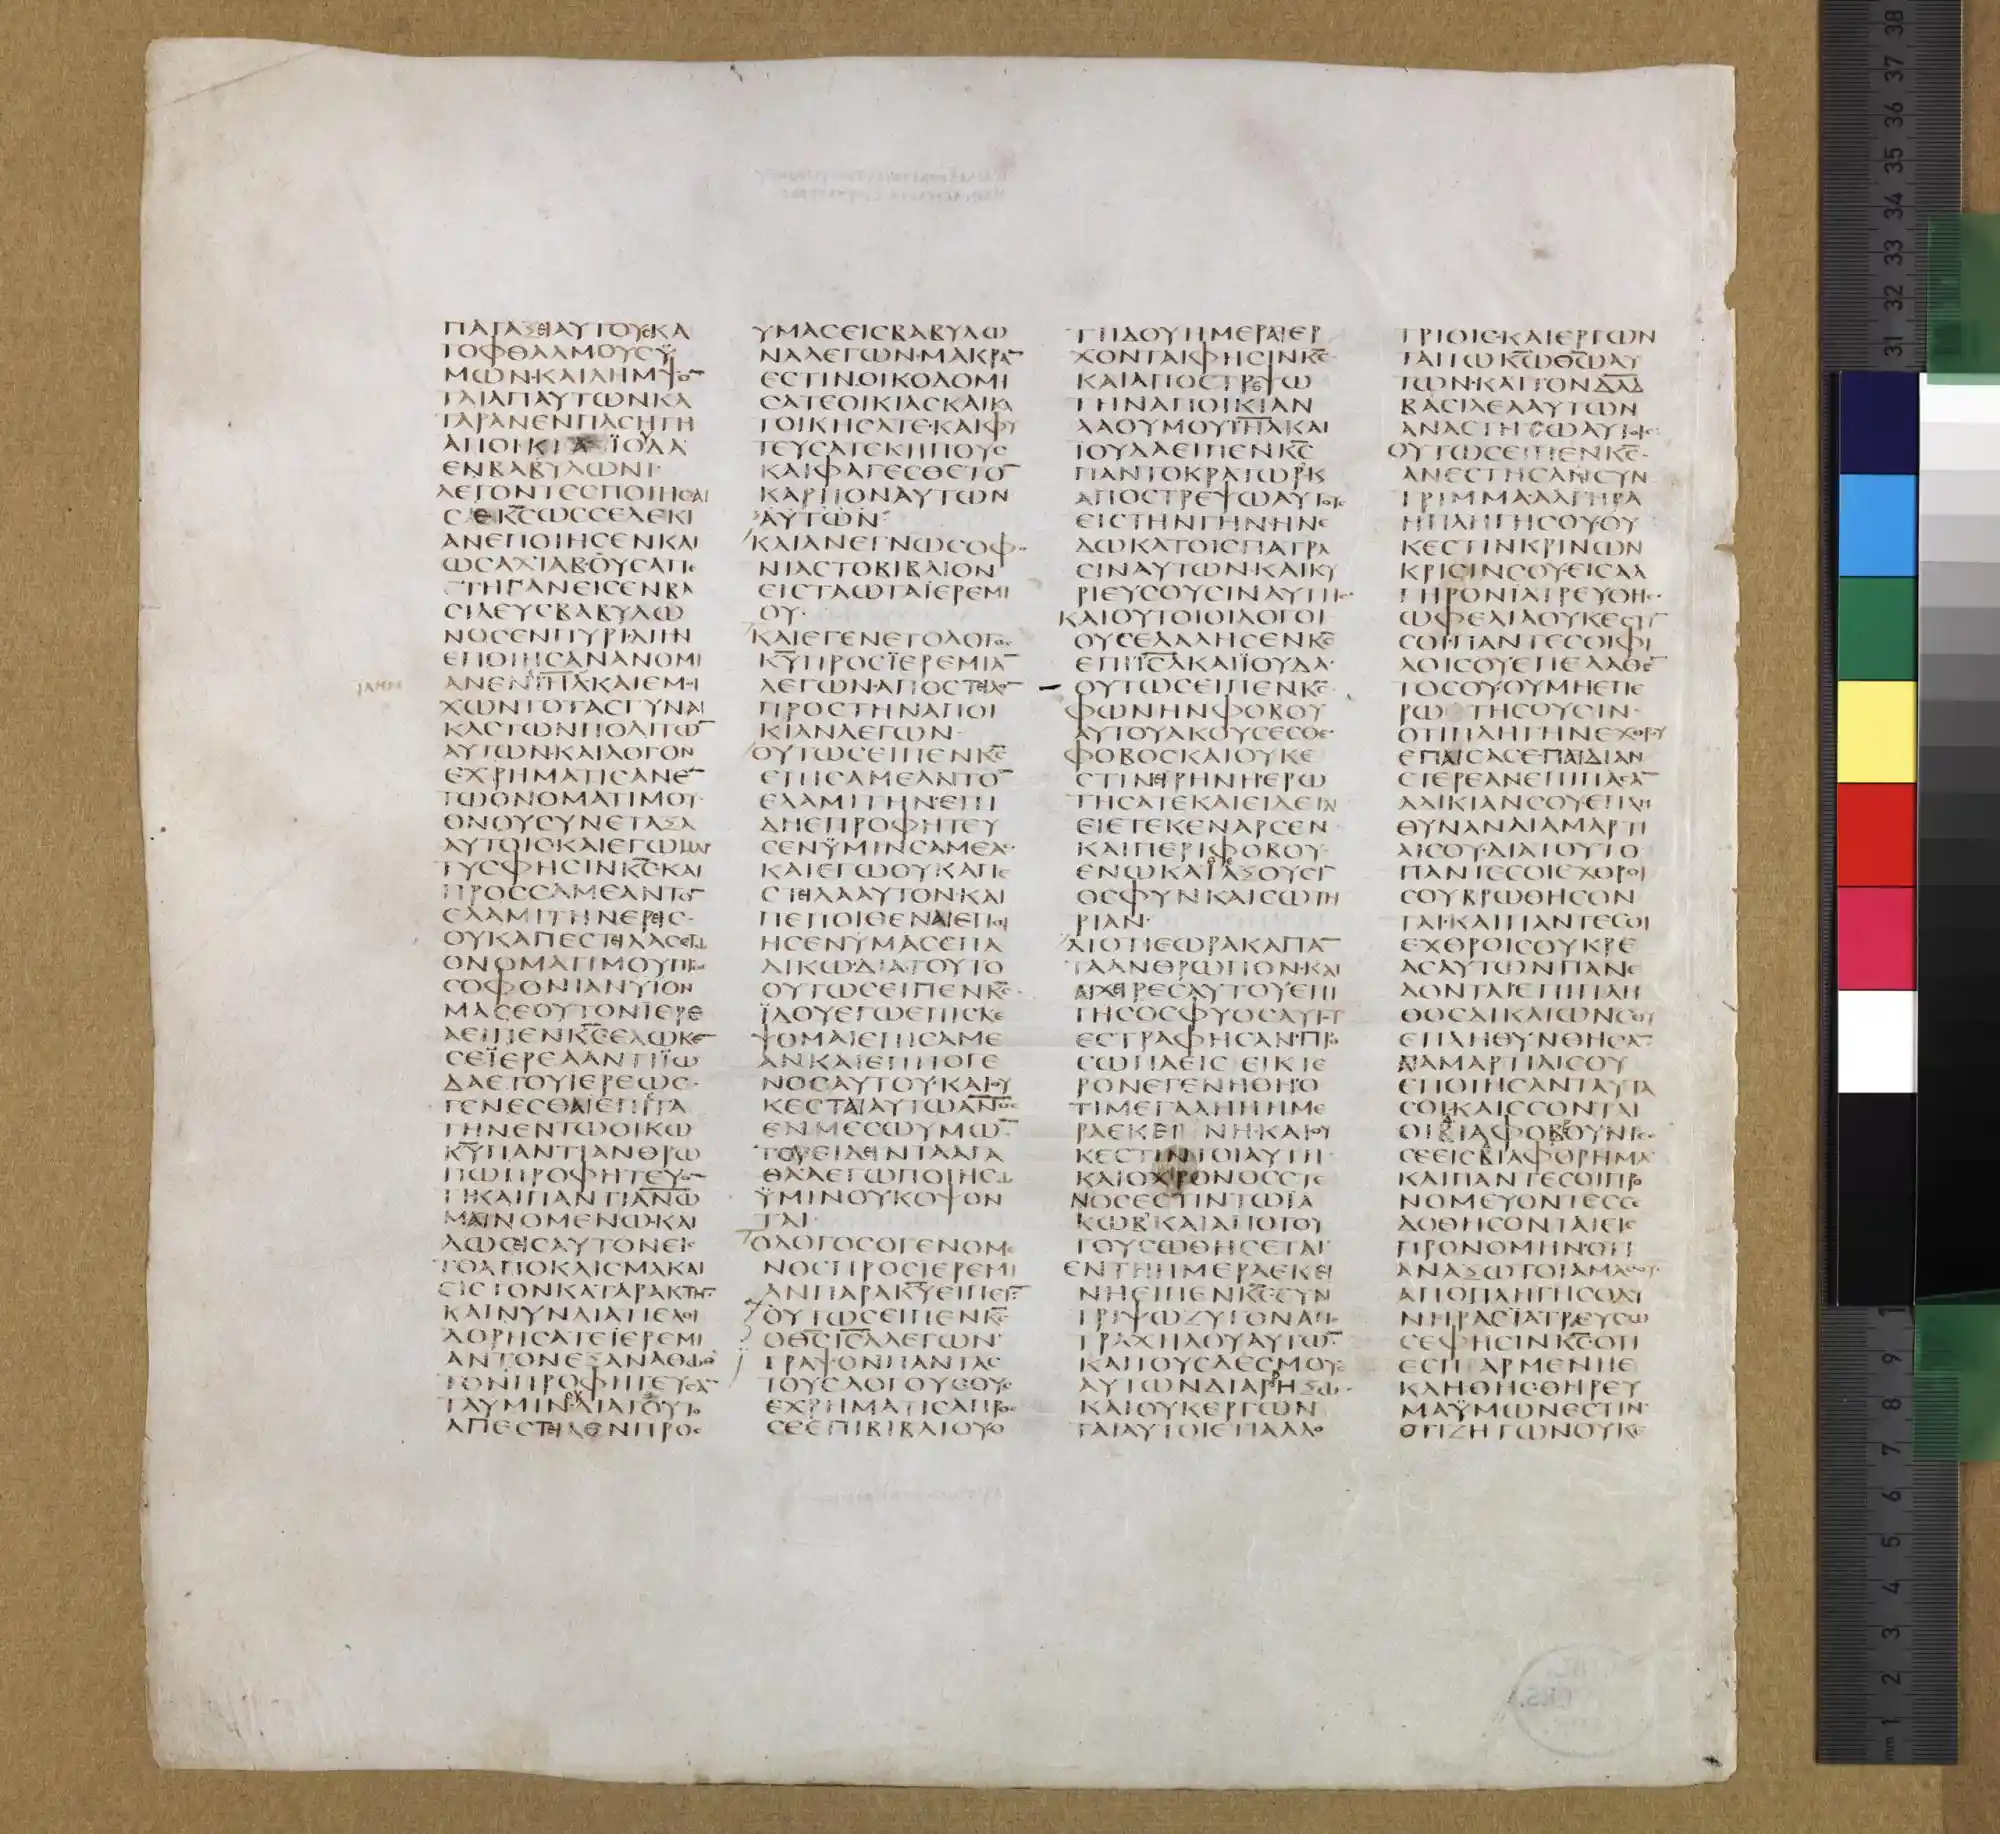 ΠΑΤΑΞΕΙΑΥΤΟΥΣΚΑ
ΤΟΦΘΑΛΜΟΥCΫ
ΜΩΝ·ΚΑΙΛΗΜΨΟ̅
ΤΑΙΑΠΑΥΤΩΝΚΑ
ΤΑΡΑΝΕΝΠΑCΗΤΗ
ΑΠΟΙΚΙΑΪΟΥΔΑ
ΕΝΒΑΒΥΛΩΝΙ·
ΛΕΓΟΝΤΕCΠΟΙΗCΑΙ
CΕΚ̅C̅ΩCCΕΔΕΚΙ
ΑΝΕΠΟΙΗCΕΝΚΑΙ
ΩCΑΧΙΑΒ·ΟΥCΑΠΕ
ΤΗΓΑΝΕΙCΕΝΒΑ
CΙΛΕΥCΒΑΒΥΛΩ
ΝΟCΕΝΠΥΡΙ·ΔΙΗΝ
ΕΠΟΙΗCΑΝΑΝΟΜΙ
ΑΝΕΝΙ̅Η̅Λ̅ΚΑΙΕΜΟΙ
ΧΩΝΤΟΤΑCΓΥΝΑΙ
ΚΑCΤΩΝΠΟΛΙΤΩ̅
ΑΥΤΩΝ·ΚΑΙΛΟΓΟΝ
ΕΧΡΗΜΑΤΙCΑΝΕ̅
ΤΩΟΝΟΜΑΤΙΜΟΥ·
ΟΝΟΥCΥΝΕΤΑΞΑ
ΑΥΤΟΙCΚΑΙΕΓΩΜΑΡ
ΤΥCΦΗCΙΝΚ̅C̅·ΚΑΙ
ΠΡΟCCΑΜΕΑΝΤΟ̅
ΕΛΑΜΙΤΗΝΕΡΕΙC·
ΟΥΚΑΠΕCΤΕΙΛΑCΕΤΩ
ΟΝΟΜΑΤΙΜΟΥΠΡΟC
CΟΦΟΝΙΑΝΥΪΟΝ
ΜΑCΕΟΥΤΟΝΙΕΡΕ
ΑΕΙΠΕΝΚ̅C̅ΕΔΩΚΕ̅
CΕΪΕΡΕΑΑΝΤΙΪΩ
ΔΑΕΤΟΥΙΕΡΕΩC·
ΓΕΝΕCΘΑΙΕΠΙCΤΑ
ΤΗΝΕΝΤΩΟΙΚΩ
Κ̅Υ̅ΠΑΝΤΙΑΝΘΡΩ
ΠΩΠΡΟΦΗΤΕΥΟ̅
ΤΙ·ΚΑΙΠΑΝΤΙΑ̅Ν̅Ω̅
ΜΑΙΝΟΜΕΝΩ·ΚΑΙ
ΔΩCΕΙCΑΥΤΟΝΕΙC
ΤΟΑΠΟΚΛΙCΜΑΚΑΙ
ΕΙCΤΟΝΚΑΤΑΡΑΚΤΗ̅·
ΚΑΙΝΥΝΔΙΑΤΙΕΛΟΙ
ΔΟΡΗCΑΤΕΪΕΡΕΜΙ
ΑΝΤΟΝΕΞΑΝΑΘΩΘ
ΤΟΝΠΡΟΦΗΤΕΥCΑ̅
ΤΑΥΜΙΝΔΙΑΤΟΥΤΟ
ΑΠΕCΤΕΙΛΕΝΠΡΟC
ΥΜΑCΕΙCΒΑΒΥΛΩ
ΝΑΛΕΓΩΝ·ΜΑΚΡΑ̅
ΕCΤΙΝ·ΟΙΚΟΔΟΜΙ
CΑΤΕΟΙΚΙΑCΚΑΙΚΑ
ΤΟΙΚΗCΑΤΕ·ΚΑΙΦΥ
ΤΕΥCΑΤΕΚΗΠΟΥC
ΚΑΙΦΑΓΕCΘΕΤΟ̅
ΚΑΡΠΟΝΑΥΤΩΝ
ΑΥΤΩΝ
ΚΑΙΑΝΕΓΝΩCΟΦΟ
ΝΙΑCΤΟΒΙΒΛΙΟΝ
ΕΙCΤΑΩΤΑΪΕΡΕΜΙ
ΟΥ·
ΚΑΙΕΓΕΝΕΤΟΛΟΓΟC
Κ̅Υ̅ΠΡΟCΪΕΡΕΜΙΑ̅
ΛΕΓΩΝ·ΑΠΟCΤΕΙΛΟ̅
ΠΡΟCΤΗΝΑΠΟΙ
ΚΙΑΝΛΕΓΩΝ·
ΟΥΤΩCΕΙΠΕΝΚ̅C̅
ΕΠΙCΑΜΕΑΝΤΟ̅
ΕΛΑΜΙΤΗΝ·ΕΠΙ
ΔΗΕΠΡΟΦΗΤΕΥ
CΕΝΫΜΙΝCΑΜΕΑ·
ΚΑΙΕΓΩΟΥΚΑΠΕ
CΤΕΙΛΑΑΥΤΟΝ·ΚΑΙ
ΠΕΠΟΙΘΕΝΑΙΕΠΟΙ
ΗCΕΝΥΜΑCΕΠΑ
ΔΙΚΩ·ΔΙΑΤΟΥΤΟ
ΟΥΤΩCΕΙΠΕΝΚ̅C̅·
ΪΔΟΥΕΓΩΕΠΙCΚΕ
ΨΟΜΑΙΕΠΙCΑΜΕ
ΑΝΚΑΙΕΠΙΤΟΓΕ
ΝΟCΑΥΤΟΥ·ΚΑΙΟΥ
ΚΕCΤΑΙΑΥΤΩΑ̅Ν̅Ο̅C̅
ΕΝΜΕCΩΥΜΩ̅
ΤΟΥΕΙΔΕΙΝΤΑΑΓΑ
ΘΑ·ΑΕΓΩΠΟΙΗCΩ
ΫΜΙΝΟΥΚΟΨΟΝ
ΤΑΙ·
ΟΛΟΓΟCΟΓΕΝΟΜΕ
ΝΟCΠΡΟCΙΕΡΕΜΙ
ΑΝΠΑΡΑΚ̅Υ̅ΕΙΠΕΙ̅
ΟΥΤΩCΕΙΠΕΝΚ̅C̅
ΟΘ̅C̅Ι̅C̅Λ̅ΛΕΓΩΝ·
ΓΡΑΨΟΝΠΑΝΤΑC
ΤΟΥCΛΟΓΟΥCΟΥC
ΕΧΡΗΜΑΤΙCΑΠΡΟC
CΕΕΠΙΒΙΒΛΙΟΥΟ
ΤΙΙΔΟΥΗΜΕΡΑΙΕΡ
ΧΟΝΤΑΙΦΗCΙΝΚ̅C̅
ΚΑΙΑΠΟCΤΡΕΨΩ
ΤΗΝΑΠΟΙΚΙΑΝ
ΛΑΟΥΜΟΥΙ̅Η̅Λ̅ΚΑΙ
ΙΟΥΔΑΕΙΠΕΝΚ̅C̅
ΠΑΝΤΟΚΡΑΤΩΡ·Κ
ΑΠΟCΤΡΕΨΩΑΥΤΟΥC
ΕΙCΤΗΝΓΗΝ·ΗΝΕ
ΔΩΚΑΤΟΙCΠΑΤΡΑ
CΙΝΑΥΤΩΝ·ΚΑΙΚΥ
ΡΙΕΥCΟΥCΙΝΑΥΤΗC·
ΚΑΙΟΥΤΟΙΟΙΛΟΓΟΙ
ΟΥCΕΛΑΛΗCΕΝΚ̅C̅
ΕΠΙΙ̅C̅Λ̅ΚΑΙΪΟΥΔΑ·
ΟΥΤΩCΕΙΠΕΝΚ̅C̅
ΦΩΝΗΝΦΟΒΟΥ
ΑΥΤΟΥΑΚΟΥCΕCΘΕ·
ΦΟΒΟCΚΑΙΟΥΚΕ
CΤΙΝΕΙΡΗΝΗ·ΕΡΩ
ΤΗCΑΤΕΚΑΙΕΙΔΕΤΕ
ΕΙΕΤΕΚΕΝΑΡCΕΝ
ΚΑΙΠΕΡΙΦΟΒΟΥ·
ΕΝΩΚΑΤΑΞΟΥCΙ
ΟCΦΥΝΚΑΙCΩΤΗ
ΡΙΑΝ·
ΔΙΟΤΙΕΩΡΑΚΑΠΑ̅
ΤΑΑΝΘΡΩΠΟΝ·ΚΑΙ
ΑΙΧΕΙΡΕCΑΥΤΟΥΕΠΙ
ΤΗCΟCΦΥΟCΑΥΤΟΥ
ΕCΤΡΑΦΗCΑΝ·ΠΡΟ
CΩΠΑΕΙCΕΙΚΤΕ
ΡΟΝΕΓΕΝΗΘΗΟ
ΤΙΜΕΓΑΛΗΗΗΜΕ
ΡΑΕΚΕΙΝΗ·ΚΑΙΟΥ
ΚΕCΤΙΝΤΟΙΑΥΤΗ·
ΚΑΙΟΧΡΟΝΟCCΤΕ
ΝΟCΕCΤΙΝΤΩΪΑ
ΚΩΒ·ΚΑΙΑΠΟΤΟΥ
ΤΟΥCΩΘΗCΕΤΑΙ
ΕΝΤΗΗΜΕΡΑΕΚΕΙ
ΝΗΕΙΠΕΝΚ̅C̅·CΥΝ
ΤΡΙΨΩΖΥΓΟΝΑΠΟ
ΤΡΑΧΗΛΟΥΑΥΤΩ̅
ΚΑΙΤΟΥCΔΕCΜΟΥC
ΑΥΤΩΝΔΙΑΡΗΞΩ·
ΚΑΙΟΥΚΕΡΓΩΝ
ΤΑΙΑΥΤΟΙΕΤΙΑΛΛΟ
ΤΡΙΟΙC·ΚΑΙΕΡΓΩΝ
ΤΑΙΤΩΚ̅Ω̅Θ̅Ω̅ΑΥ
ΤΩΝ·ΚΑΙΤΟΝΔ̅Α̅Δ̅
ΒΑCΙΛΕΑΑΥΤΩΝ
ΑΝΑCΤΗCΩΑΥΤΟΙC·
ΟΥΤΩCΕΙΠΕΝΚ̅C̅·
ΑΝΕCΤΗCΑCΥΝ
ΤΡΙΜΜΑ·ΑΛΓΗΡΑ
ΗΠΛΗΓΗCΟΥ·ΟΥ
ΚΕCΤΙΝΚΡΙΝΩΝ
ΚΡΙCΙΝCΟΥ·ΕΙCΑΛ
ΓΗΡΟΝΙΑΤΡΕΥΘΗC·
ΩΦΕΛΙΑΟΥΚΕCΤΙ
CΟΙ·ΠΑΝΤΕCΟΙΦΙ
ΛΟΙCΟΥΕΠΕΛΑΘΕ̅
ΤΟCΟΥ·ΟΥΜΗΕΠΕ
ΡΩΤΗCΟΥCΙΝ·
ΟΤΙΠΛΗΓΗΝΕΧΘΡΟΥ
ΕΠΑΙCΑCΕΠΑΙΔΙΑΝ
CΤΕΡΕΑΝΕΠΙΠΑCΑ̅
ΑΔΙΚΙΑΝCΟΥ·ΕΠΛΗ
ΘΥΝΑΝΑΙΑΜΑΡΤΙ
ΑΙCΟΥ·ΔΙΑΤΟΥΤΟ
ΠΑΝΤΕCΟΙΕΧΘΡΟΙ
CΟΥΒΡΩΘΗCΟΝ
ΤΑΙ·ΚΑΙΠΑΝΤΕCΟΙ
ΕΧΘΡΟΙCΟΥΚΡΕ
ΑCΑΥΤΩΝΠΑΝΕ
ΔΟΝΤΑΙ·ΕΠΙΠΛΗ
ΘΟCΑΔΙΚΙΩΝCΟΥ
ΕΠΛΗΘΥΝΘΗCΑ̅
ΑΜΑΡΤΙΑΙCΟΥ
ΕΠΟΙΗCΑΝΤΑΥΤΑ
CΟΙ·ΚΑΙΕCΟΝΤΑΙ
ΟΙΔΙΑΦΟΡΟΥΝΤΕC
CΕΕΙCΔΙΑΦΟΡΗΜΑ·
ΚΑΙΠΑΝΤΕCΟΙΠΡΟ
ΝΟΜΕΥΟΝΤΕCCΕ
ΔΟΘΗCΟΝΤΑΙΕΙC
ΠΡΟΝΟΜΗΝ·ΟΤΙ
ΑΝΑΞΩΤΟΙΑΜΑ
ΑΠΟΠΛΗΓΗCΟΔΥ
ΝΗΡΑCΪΑΤΡΕΥCΩ
CΕΦΗCΙΝΚ̅C̅·ΟΤΙ
ΕCΠΑΡΜΕΝΗΕ
ΚΛΗΘΗC·ΘΗΡΕΥ
ΜΑΫΜΩΝΕCΤΙΝ·
ΟΤΙΖΗΤΩΝΟΥΚΕ